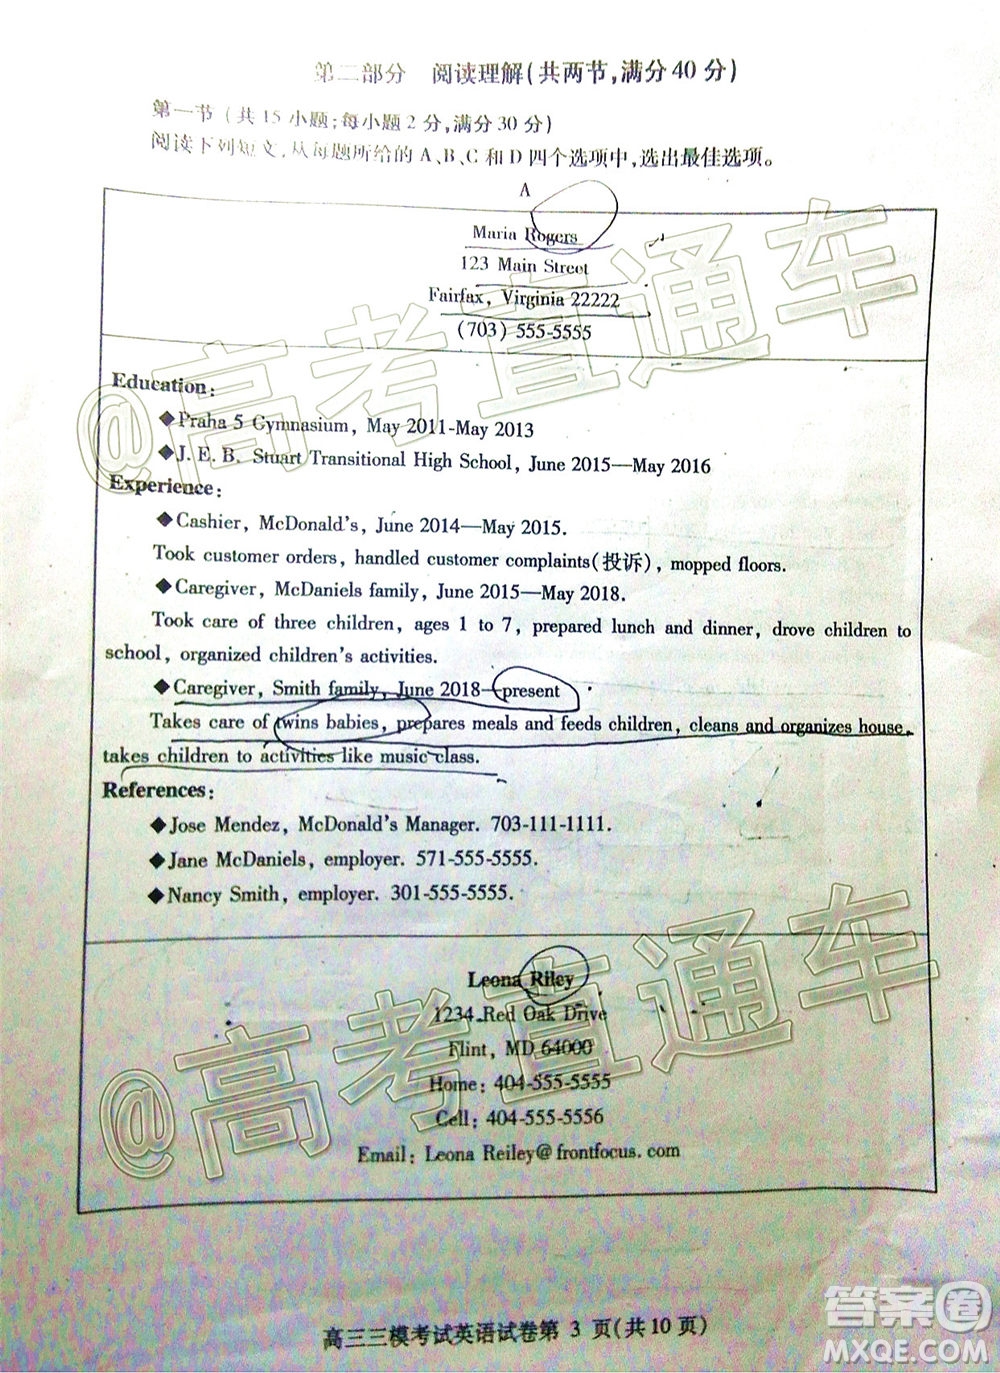 第二部分 阅读理解(共两节,满分40分)
第一节 (共15小题;每小题2分,满分30分)
阅读下列短文,从每题所给的A、B、C和D四个选项中,选出最佳选项。
A
Maria Rogers
123 Main Street
Fairfax, Virginia 22222
(703) 555-5555
Education:
◆Praha 5 Gymnasium, May 2011-May 2013
◆J. E. B. Stuart Transitional High School, June 2015—May 2016
Experience:
◆Cashier, McDonald's, June 2014—May 2015.
Took customer orders, handled customer complaints(投诉), mopped floors.
◆Caregiver, McDaniels family, June 2015—May 2018.
Took care of three children, ages 1 to 7, prepared lunch and dinner, drove children to
school, organized children's activities.
◆Caregiver, Smith family, June 2018—present
Takes care of twins babies, prepares meals and feeds children, cleans and organizes house,
takes children to activities like music class.
References:
◆Jose Mendez, McDonald's Manager. 703-111-1111.
◆Jane McDaniels, employer. 571-555-5555.
◆Nancy Smith, employer. 301-555-5555.
Leona Riley
1234 Red Oak Drive
Flint, MD 64000
Home: 404-555-5555
Cell: 404-555-5556
Email: Leona Reiley@frontfocus.com
高三三模考试英语试卷第 3 页(共10页)
@高考直通车
@高考直通车
答案圈
MXQE.COM